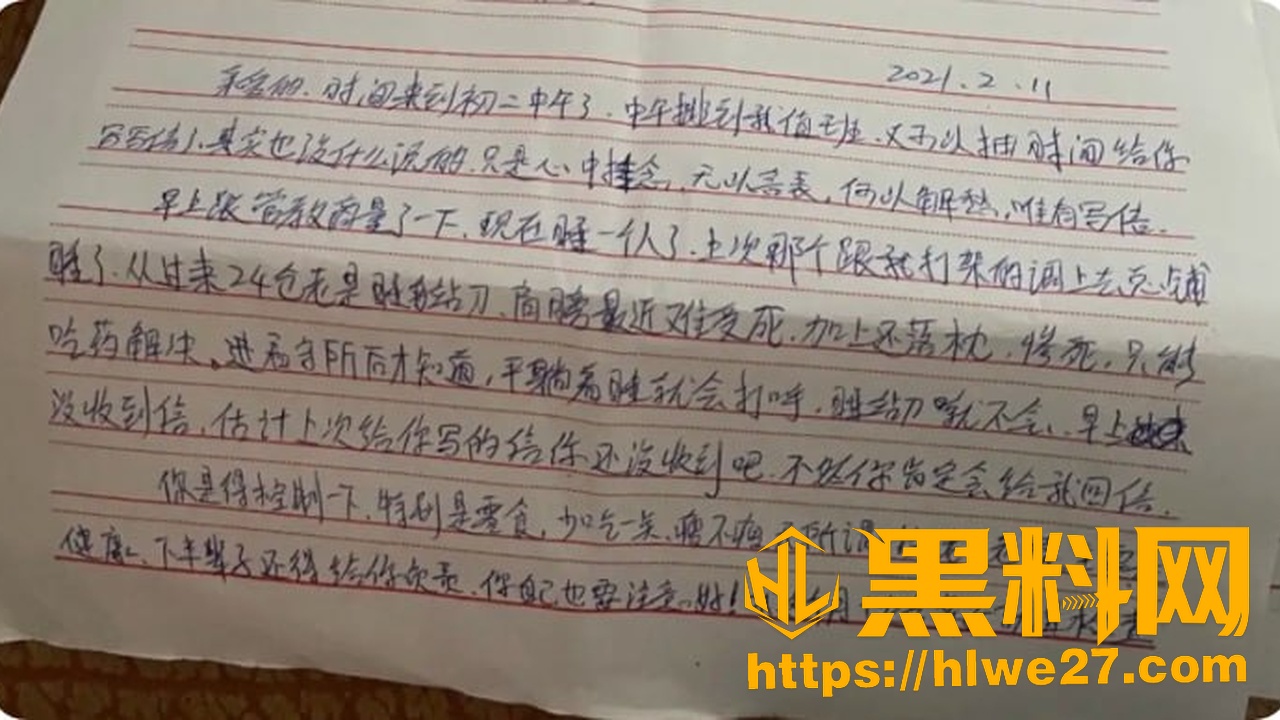 2021.2.11
亲爱的、时间来到初二中午了、中午排到我值班、又可以抽时间给你
写写信了、其实也没什么说的、只是心中挂念、无以言表、何以解愁、唯有写信、
早上跟管教商量了一下、现在睡一个人了、上次那个跟我打架的调上去点铺
睡了、从过来24仓老是睡站刀、肩膀最近难受死、加上还落枕、惨死、只能
吃药解决。进看守所后才知道，平躺着睡就会打呼、睡站刀就不会、早上
没收到信、估计上次给你写的信你还没收到吧、不然你肯定会给我回信、
你是得控制一下、特别是零食、少吃一点、瘦不瘦无所谓
健康、下半辈子还得给你 你自己也要注意 好！
黑料网
https://hlwe27.com